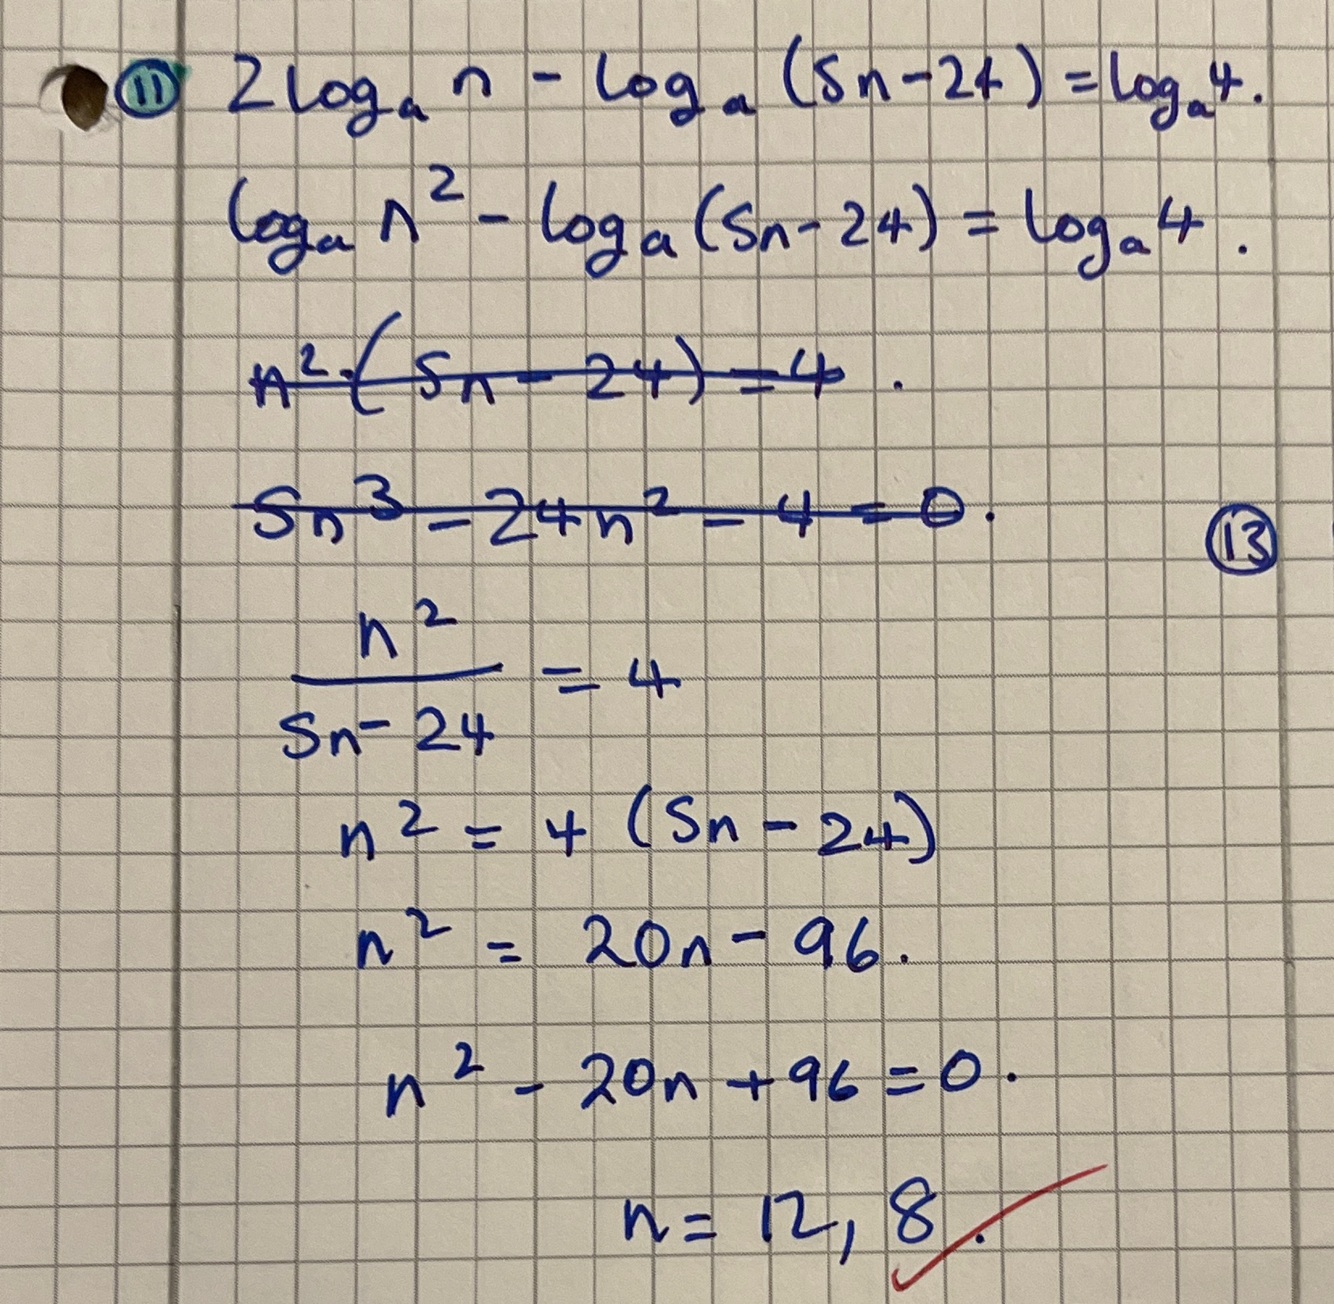 ⑪ 2logₐ n - logₐ (5n-24) = logₐ4.
logₐ n² - logₐ (5n-24) = logₐ 4.
n²·(5n-24) = 4.
5n³ - 24n² - 4 = 0.
⑬
n²
5n-24 = 4
n² = 4 (5n-24)
n² = 20n - 96.
n² - 20n + 96 = 0.
n = 12, 8.